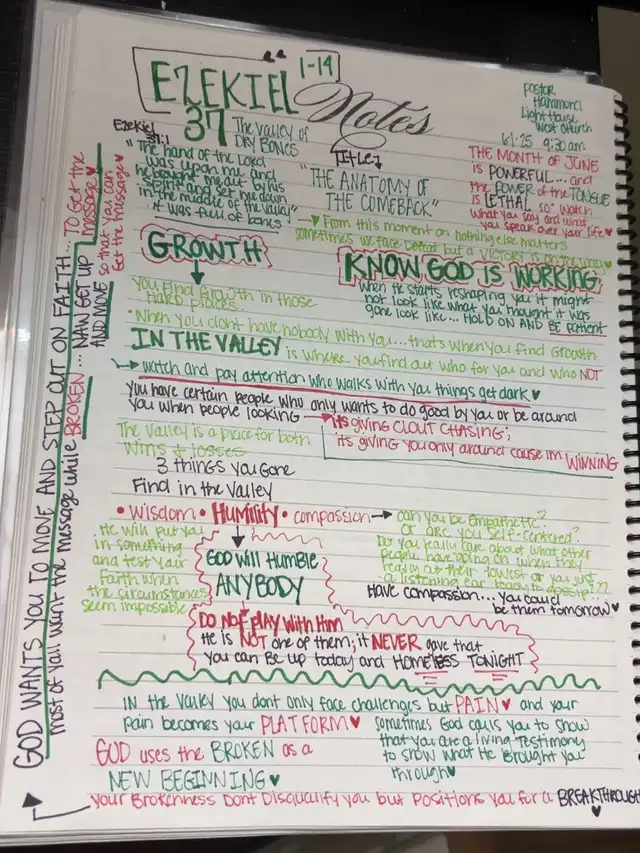 EZEKIEL 1-14
37
Notes
The valley of
DRY BONES
Pastor
Hammond
LightHouse
West Church
6-1-25 9:30 am
Ezekiel
37:1
"The hand of the Lord
was upon me and
he brought me out by his
spirit and set me down
in the middle of the valley"
it was full of bones
Title:
"THE ANATOMY OF
THE COMEBACK"
THE MONTH OF JUNE
is POWERFUL... and
the POWER of the TONGUE
is LETHAL so watch
what you say and what
you speak over your life ♥
From this moment on nothing else matters
sometimes we face defeat but a victory is on the way
GROWTH
KNOW GOD IS WORKING
when He starts reshaping you it might
not look like what you thought it was
gone look like... HOLD ON AND BE patient
You find growth in those
Hard places..
• When you dont have nobody with you... that's when you find Growth
IN THE VALLEY is where you find out who for you and who NOT
watch and pay attention who walks with you things get dark ♥
You have certain people who only wants to do good by you or be around
you when people looking → its giving CLOUT CHASING;
its giving you only around cause im WINNING
The valley is a place for both
wins & losses
3 things you Gone
Find in the Valley
• wisdom • Humility • compassion → can you be Empathetic?
Or are you self-centered?
Do you really care about what other
people have going on when they
really at their lowest or you just
a listening ear ready to gossip??
Have compassion... you could
be them tomorrow ♥
..He will put you
in something
and test your
Faith when
the circumstances
seem impossible
GOD will HUMBLE
ANYBODY
DO NOT play with Him
He is NOT one of them; it NEVER gave that
you can be up today and HOMELESS TONIGHT
IN the valley you dont only face challenges but PAIN ♥ and your
pain becomes your PLATFORM ♥
sometimes God calls you to show
that you are a living testimony
to show what He brought you
through ♥
GOD uses the BROKEN as a
NEW BEGINNING ♥
your Brokenness Dont Disqualify you but Positions you for a BREAKTHROUGH
♥
GOD WANTS YOU TO MOVE AND STEP OUT ON FAITH... TO Get the message ♥
most of yall want the message while BROKEN... NAW GET UP
AND MOVE so that you can
Get the message ♥